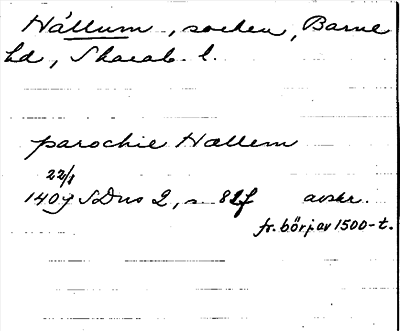 Hällum, socken, Barne
hd, Skarab. l.
parochie Hællem
22/1
1409 SDns 2, s 82f avskr.
fr. börj. av 1500-t.